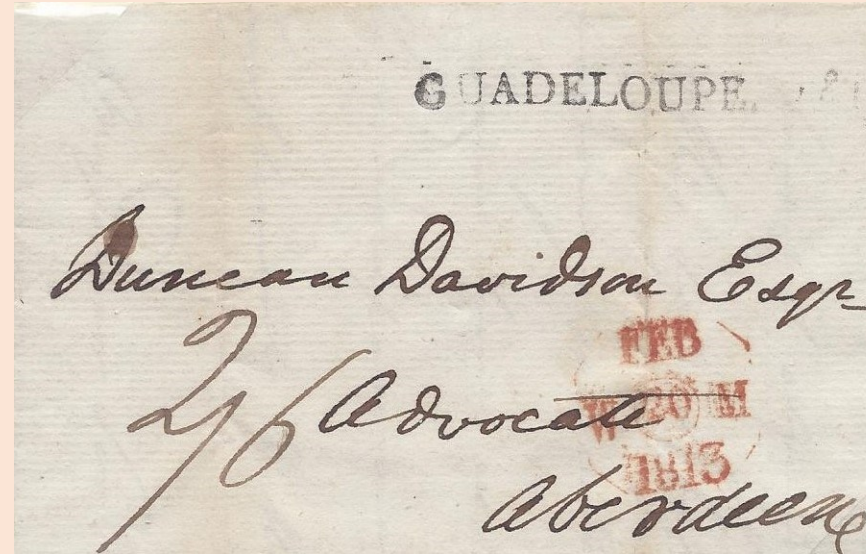 GUADELOUPE.
Duncan Davidson Esqr
FEB
2/6 Advocate
W 20 M
1813
Aberdeen